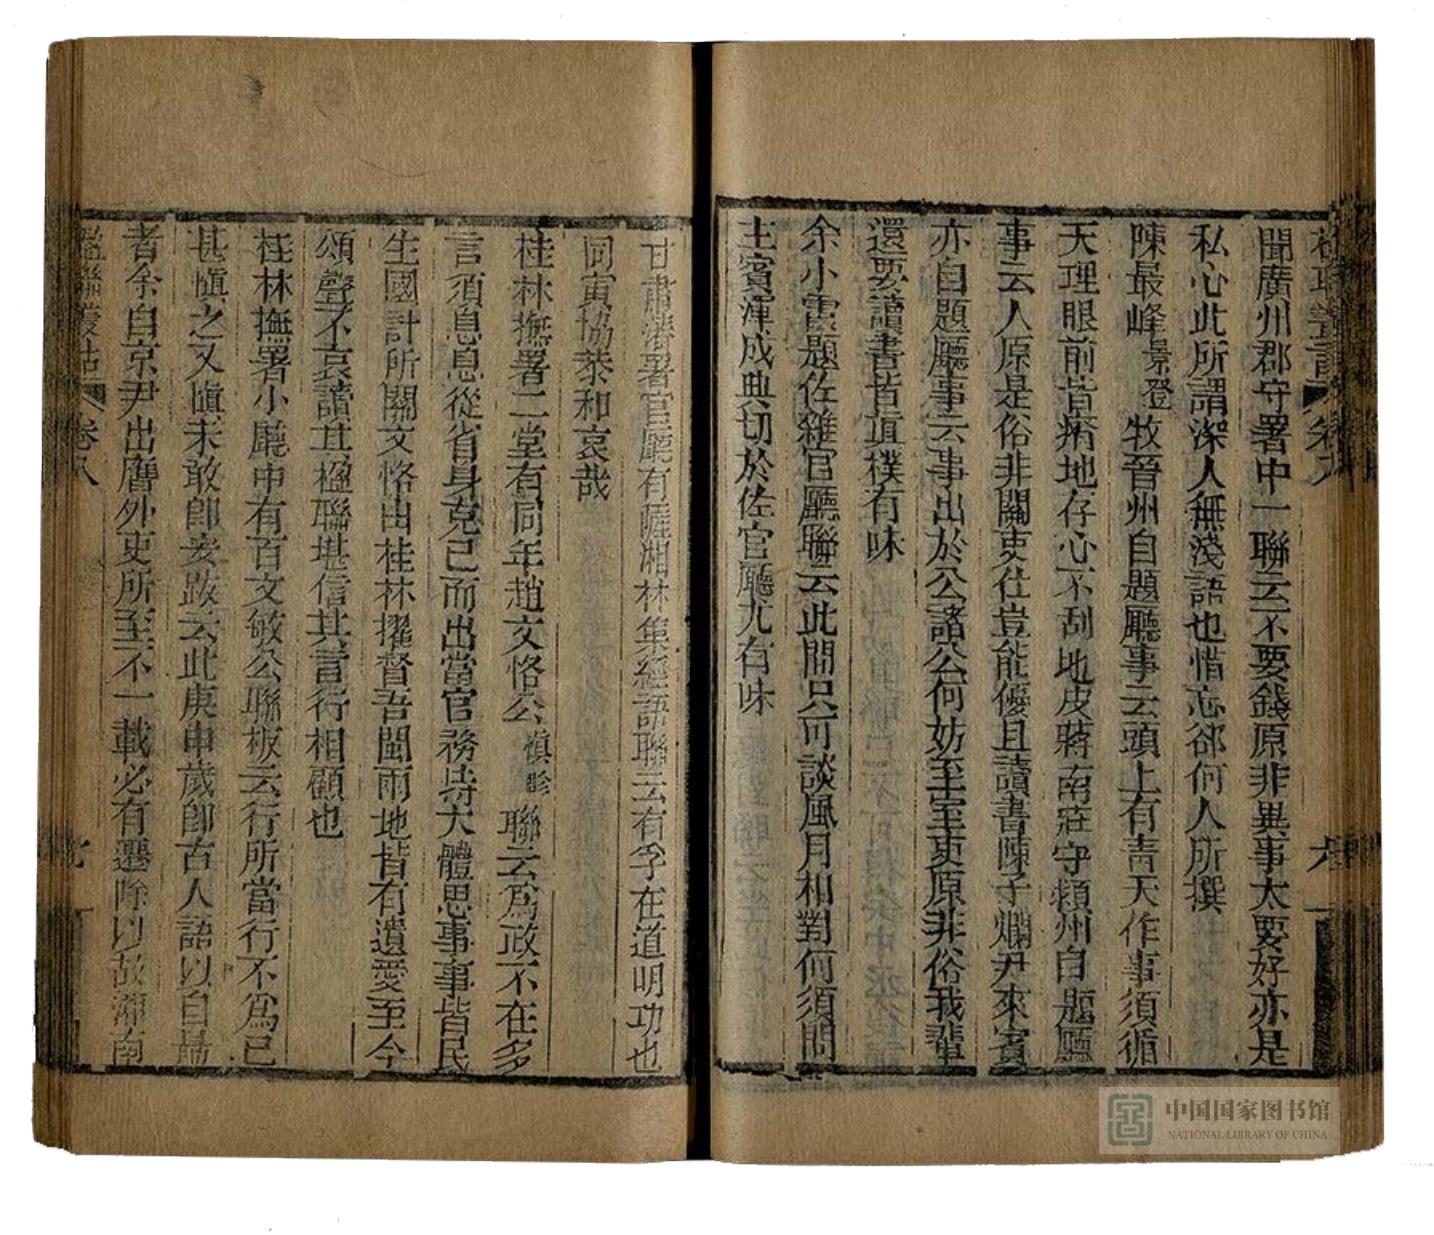 聞廣州郡守署中一聯云不要錢原非異事太要好亦是
私心此所謂深人無淺語也惜忘郤何人所撰
陳最峰景登牧晉州自題廳事云頭上有靑天作事須循
天理眼前皆瘠地存心不刮地皮蔣南莊守潁州自題廳
事云人原是俗非關吏仕豈能優且讀書陳子爛尹來賓
亦自題廳事云事出於公諸公何妨至室吏原非俗我輩
還要讀書皆眞樸有味
余小霞題佐雜官廳聯云此間只可談風月相對何須問
主賓渾成典切於佐官廳尤有味
甘肅藩署官廳有薩湘林集經語聯云有孚在道明功也
同寅協恭和衷哉
桂林撫署二堂有同年趙文恪公愼畛聯云爲政不在多
言須息息從省身克己而出當官務持大體思事事皆民
生國計所關文恪由桂林擢督吾閩兩地皆有遺愛至今
頌聲不衰讀其楹聯堪信其言行相顧也
桂林撫署小廳中有百文敏公聯板云行所當行不爲已
甚愼之又愼未敢卽安跋云此庚申歲卽古人語以自勗
者余自京尹出膺外吏所至不一載必有遷除以故湖南
楹聯叢話 卷八
中国国家图书馆
NATIONAL LIBRARY OF CHINA